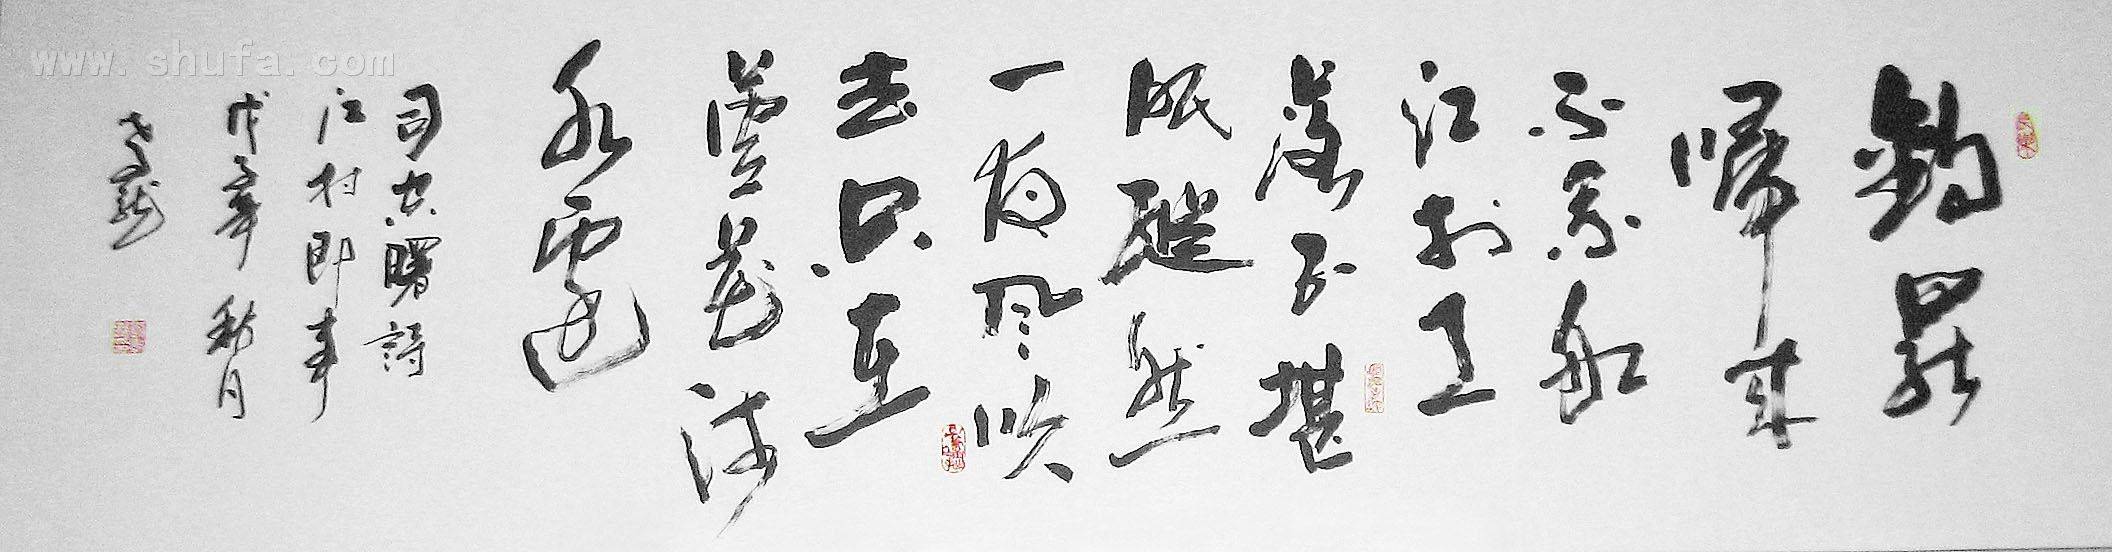 釣罷
歸来
不系船
江村月
落正堪
眠縱然
一夜风吹
去只在
蘆花浅
水邊
司空曙詩
江村即事
戊子年秋月
www.shufa.com